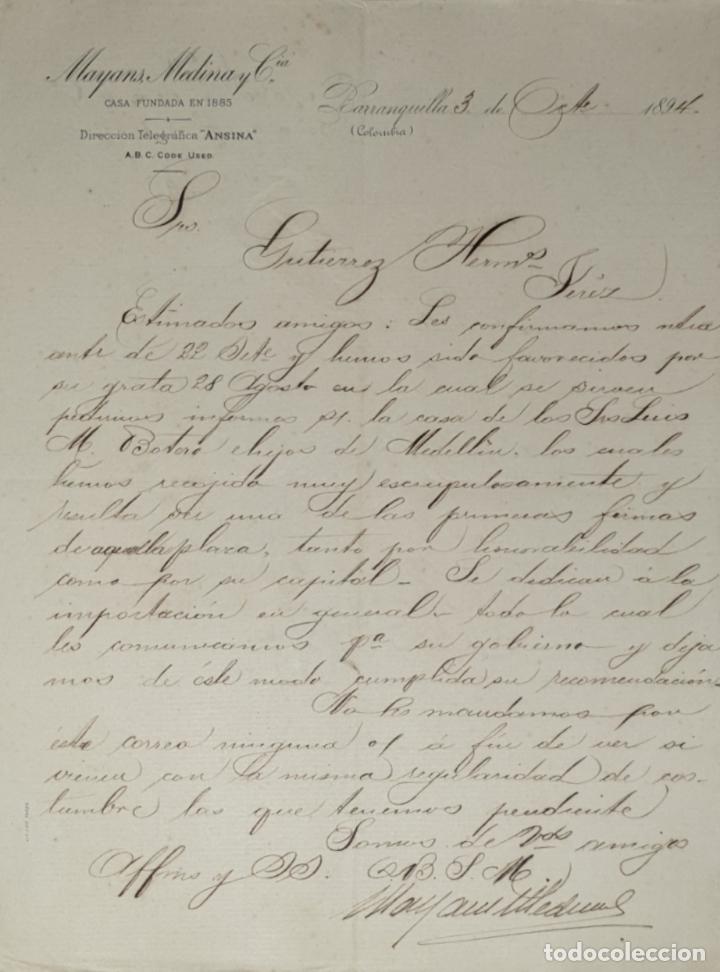 Mayans, Medina y Cia.
CASA FUNDADA EN 1885
Dirección Telegráfica "ANSINA"
A.B.C. CODE USED.
Barranquilla 3 de Octe 1894.
(Colombia)
Srs.
Gutierrez Hermos
Jerez
Estimados amigos: Les confirmamos ntra
ante de 22 Sete y hemos sido favorecidos por
su grata 28 Agosto en la cual se sirven
pedirnos informes s/. la casa de los Srs Luis
M. Botero e hijos de Medellin, los cuales
hemos recojido muy escrupulosamente y
resulta ser una de las primeras firmas
de aquella plaza, tanto por honorabilidad
como por su capital - Se dedican á la
importación en general - todo lo cual
les comunicamos pa su gobierno y deja
mos de éste modo cumplida su recomendación
No les mandamos por
éste correo ninguna o/ á fin de ver si
vienen con la misma regularidad de cos-
tumbre las que tenemos pendiente
Somos de Vds amigos
Affmos y SS. Q.B.S.M.
Mayans Medina
todocoleccion
todocoleccion.net